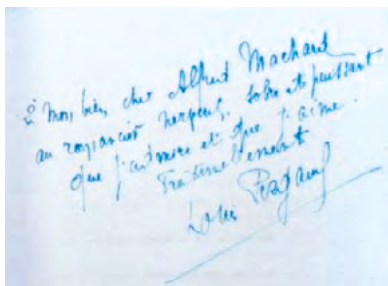 à mon bien cher Alfred Machard
au romancier nerveux, sobre et puissant
que j'admire et que j'aime.
Fraternellement
Louis Pergaud